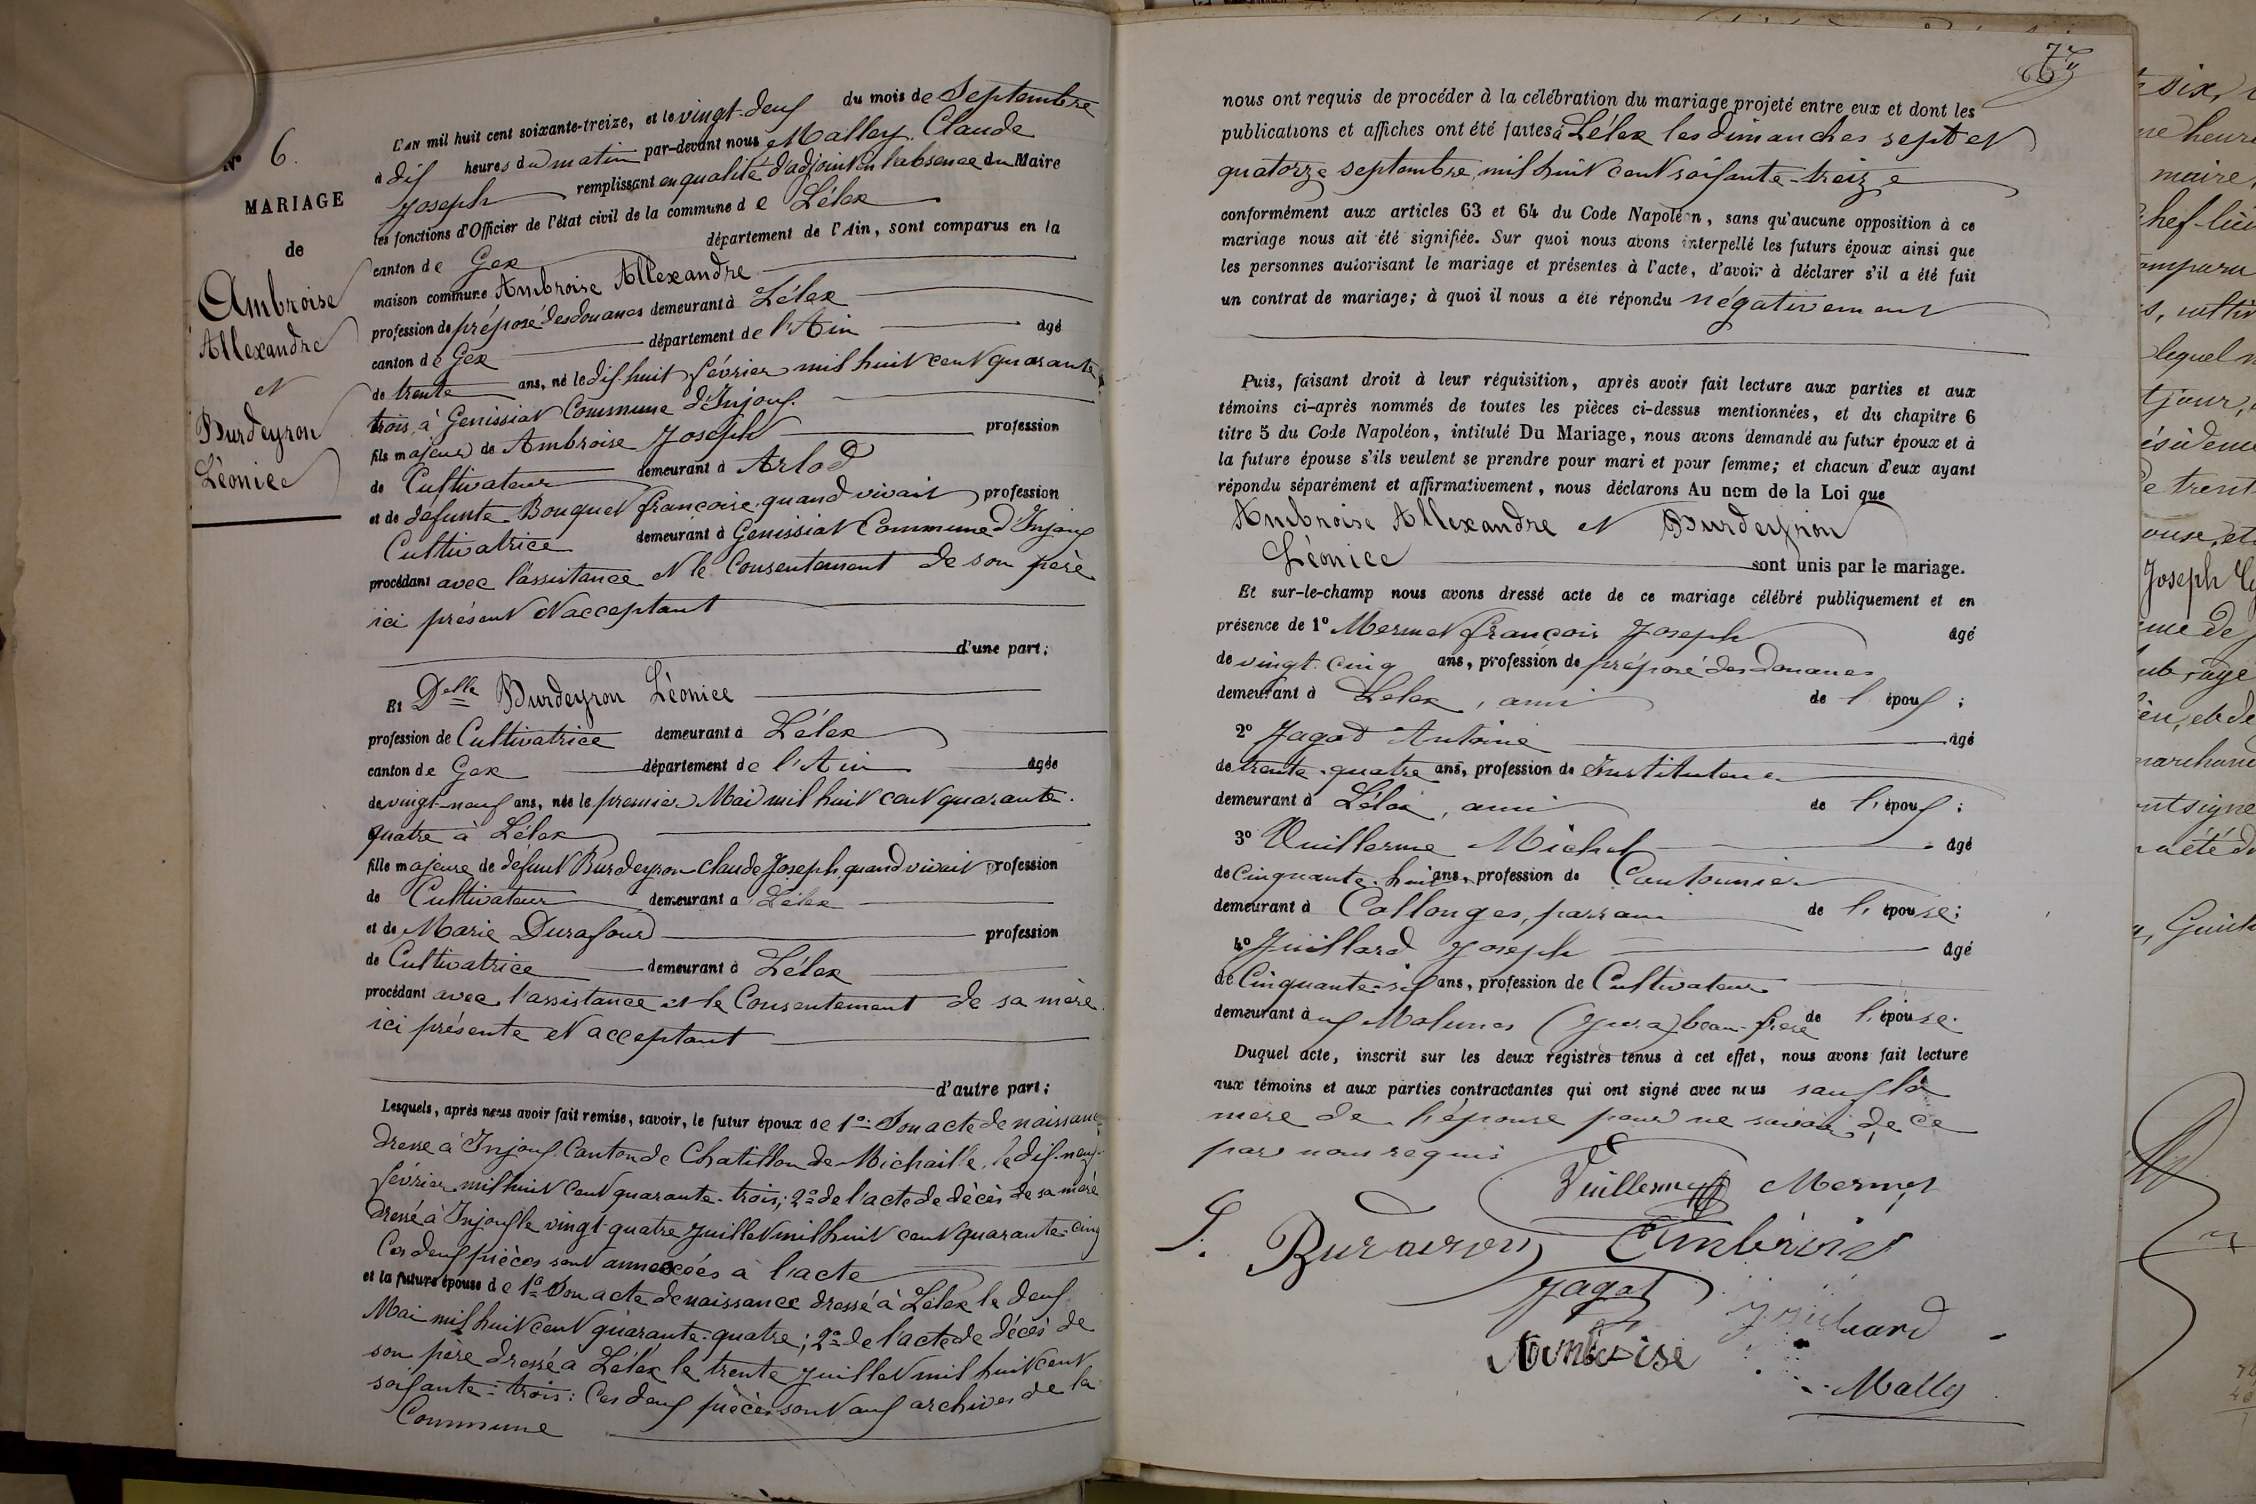 N° 6.
MARIAGE
de
Ambroise
Allexandre
et
Burdeyron
Léonice
L'AN mil huit cent soixante-treize, et le vingt-deux du mois de Septembre
à dix heures du matin par-devant nous Malley Claude
Joseph remplissant en qualité d'adjoint en l'absence du Maire
les fonctions d'Officier de l'état civil de la commune de Lélex
canton de Gex département de l'Ain, sont comparus en la
maison commune Ambroise Allexandre
profession de préposé des douanes demeurant à Lélex
canton de Gex département de l'Ain âgé
de trente ans, né le dix-huit février mil huit cent quarante
trois, à Genissiat Commune d'Injoux
fils majeur de Ambroise Joseph profession
de Cultivateur demeurant à Arlod
et de défunte Bouquet françoise quand vivait profession
Cultivatrice demeurant à Genissiat Commune d'Injoux
procédant avec l'assistance et le Consentement de son père
ici présent et acceptant
d'une part;
Et Delle Burdeyron Léonice
profession de Cultivatrice demeurant à Lélex
canton de Gex département de l'Ain âgée
de vingt-neuf ans, née le premier Mai mil huit cent quarante-
quatre à Lélex
fille majeure de défunt Burdeyron Claude Joseph quand vivait profession
de Cultivateur demeurant à Lélex
et de Marie Durafour profession
de Cultivatrice demeurant à Lélex
procédant avec l'assistance et le Consentement de sa mère
ici présente et acceptant
d'autre part;
Lesquels, après nous avoir fait remise, savoir, le futur époux de 1° Son acte de naissance
dressé à Injoux Canton de Chatillon de Michaille, le dix-neuf
février mil huit cent quarante-trois; 2° de l'acte de décès de sa mère
dressé à Injoux le vingt-quatre juillet mil huit cent quarante-cinq
Ces deux pièces sont annexées à l'acte
et la future épouse de 1° Son acte de naissance dressé à Lélex le deux
Mai mil huit cent quarante-quatre; 2° de l'acte de décès de
son père dressé à Lélex le trente juillet mil huit cent
soixante-trois: Ces deux pièces sont aux archives de la
Commune
nous ont requis de procéder à la célébration du mariage projeté entre eux et dont les
publications et affiches ont été faites à Lélex les dimanches sept et
quatorze septembre mil huit cent soixante-treize
conformément aux articles 63 et 64 du Code Napoléon, sans qu'aucune opposition à ce
mariage nous ait été signifiée. Sur quoi nous avons interpellé les futurs époux ainsi que
les personnes autorisant le mariage et présentes à l'acte, d'avoir à déclarer s'il a été fait
un contrat de mariage; à quoi il nous a été répondu négativement
Puis, faisant droit à leur réquisition, après avoir fait lecture aux parties et aux
témoins ci-après nommés de toutes les pièces ci-dessus mentionnées, et du chapitre 6
titre 5 du Code Napoléon, intitulé Du Mariage, nous avons demandé au futur époux et à
la future épouse s'ils veulent se prendre pour mari et pour femme; et chacun d'eux ayant
répondu séparément et affirmativement, nous déclarons Au nom de la Loi que
Ambroise Allexandre et Burdeyron
Léonice sont unis par le mariage.
Et sur-le-champ nous avons dressé acte de ce mariage célébré publiquement et en
présence de 1° Mermet françois Joseph âgé
de vingt-cinq ans, profession de préposé des douanes
demeurant à Lélex, ami de l'époux;
2° Jagot Antoine âgé
de trente-quatre ans, profession de Instituteur
demeurant à Lélex, ami de l'époux;
3° Vuillerme Michel âgé
de Cinquante-huit ans, profession de Cantonnier
demeurant à Collonges, parrain de l'épouse;
4° Juillard Joseph âgé
de Cinquante-six ans, profession de Cultivateur
demeurant à aux Molunes (Jura) beau-frère de l'épouse.
Duquel acte, inscrit sur les deux registres tenus à cet effet, nous avons fait lecture
aux témoins et aux parties contractantes qui ont signé avec nous sauf la
mère de l'épouse pour ne savoir, de ce
par nous requis
Vuillerme Mermet
L. Burdeyron Ambroise
Jagot
Juillard
Ambroise
Mally